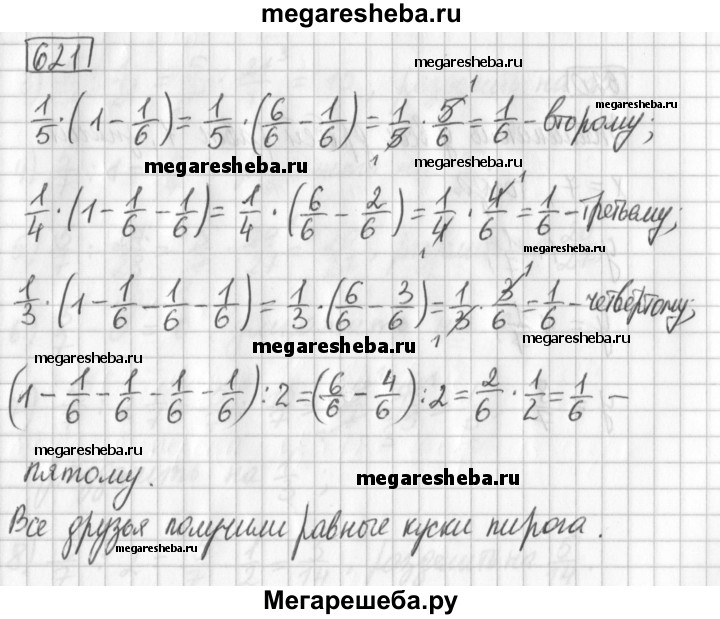 megaresheba.ru
621
megaresheba.ru
1/5 · (1 − 1/6) = 1/5 · (6/6 − 1/6) = 1/5 · 5/6 = 1/6 − второму;
megaresheba.ru
megaresheba.ru
1/4 · (1 − 1/6 − 1/6) = 1/4 · (6/6 − 2/6) = 1/4 · 4/6 = 1/6 − третьему;
megaresheba.ru
1/3 · (1 − 1/6 − 1/6 − 1/6) = 1/3 · (6/6 − 3/6) = 1/3 · 3/6 = 1/6 − четвёртому;
megaresheba.ru
megaresheba.ru
(1 − 1/6 − 1/6 − 1/6 − 1/6) : 2 = (6/6 − 4/6) : 2 = 2/6 · 1/2 = 1/6 −
megaresheba.ru
пятому.
megaresheba.ru
Все друзья получили равные куски пирога.
megaresheba.ru
Мегарешеба.ру